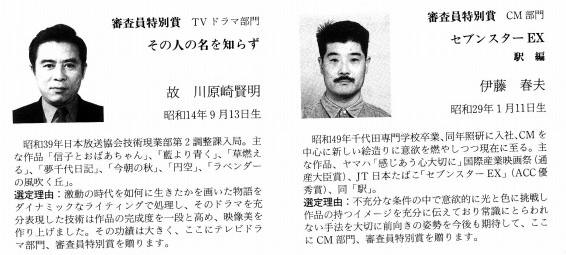 審査員特別賞 TVドラマ部門
その人の名を知らず
故 川原崎賢明
昭和14年9月13日生
昭和39年日本放送協会技術現業部第2調整課入局。主
な作品「信子とおばあちゃん」、「藍より青く」、「草燃え
る」、「夢千代日記」、「今朝の秋」、「円空」、「ラベンダー
の風吹く丘」。
選定理由:激動の時代を如何に生きたかを画いた物語を
ダイナミックなライティングで処理し、そのドラマを充
分表現した技術は作品の完成度を一段と高め、映像美を
作り上げました。その功績は大きく、ここにテレビドラ
マ部門、審査員特別賞を贈ります。
審査員特別賞 CM部門
セブンスターEX
駅 編
伊藤 春夫
昭和29年1月11日生
昭和49年千代田専門学校卒業、同年照研に入社、CMを
中心に新しい絵造りに意欲を燃やしつつ現在に至る。主
な作品、ヤマハ「感じあう心大切に」国際産業映画祭(通
産大臣賞)、JT日本たばこ「セブンスターEX」(ACC優
秀賞)、同「駅」。
選定理由:不充分な条件の中で意欲的に光と色に挑戦し
作品の持つイメージを充分に伝えており常識にとらわれ
ない手法を大切に前向きの姿勢を今後も期待して、ここ
にCM部門、審査員特別賞を贈ります。